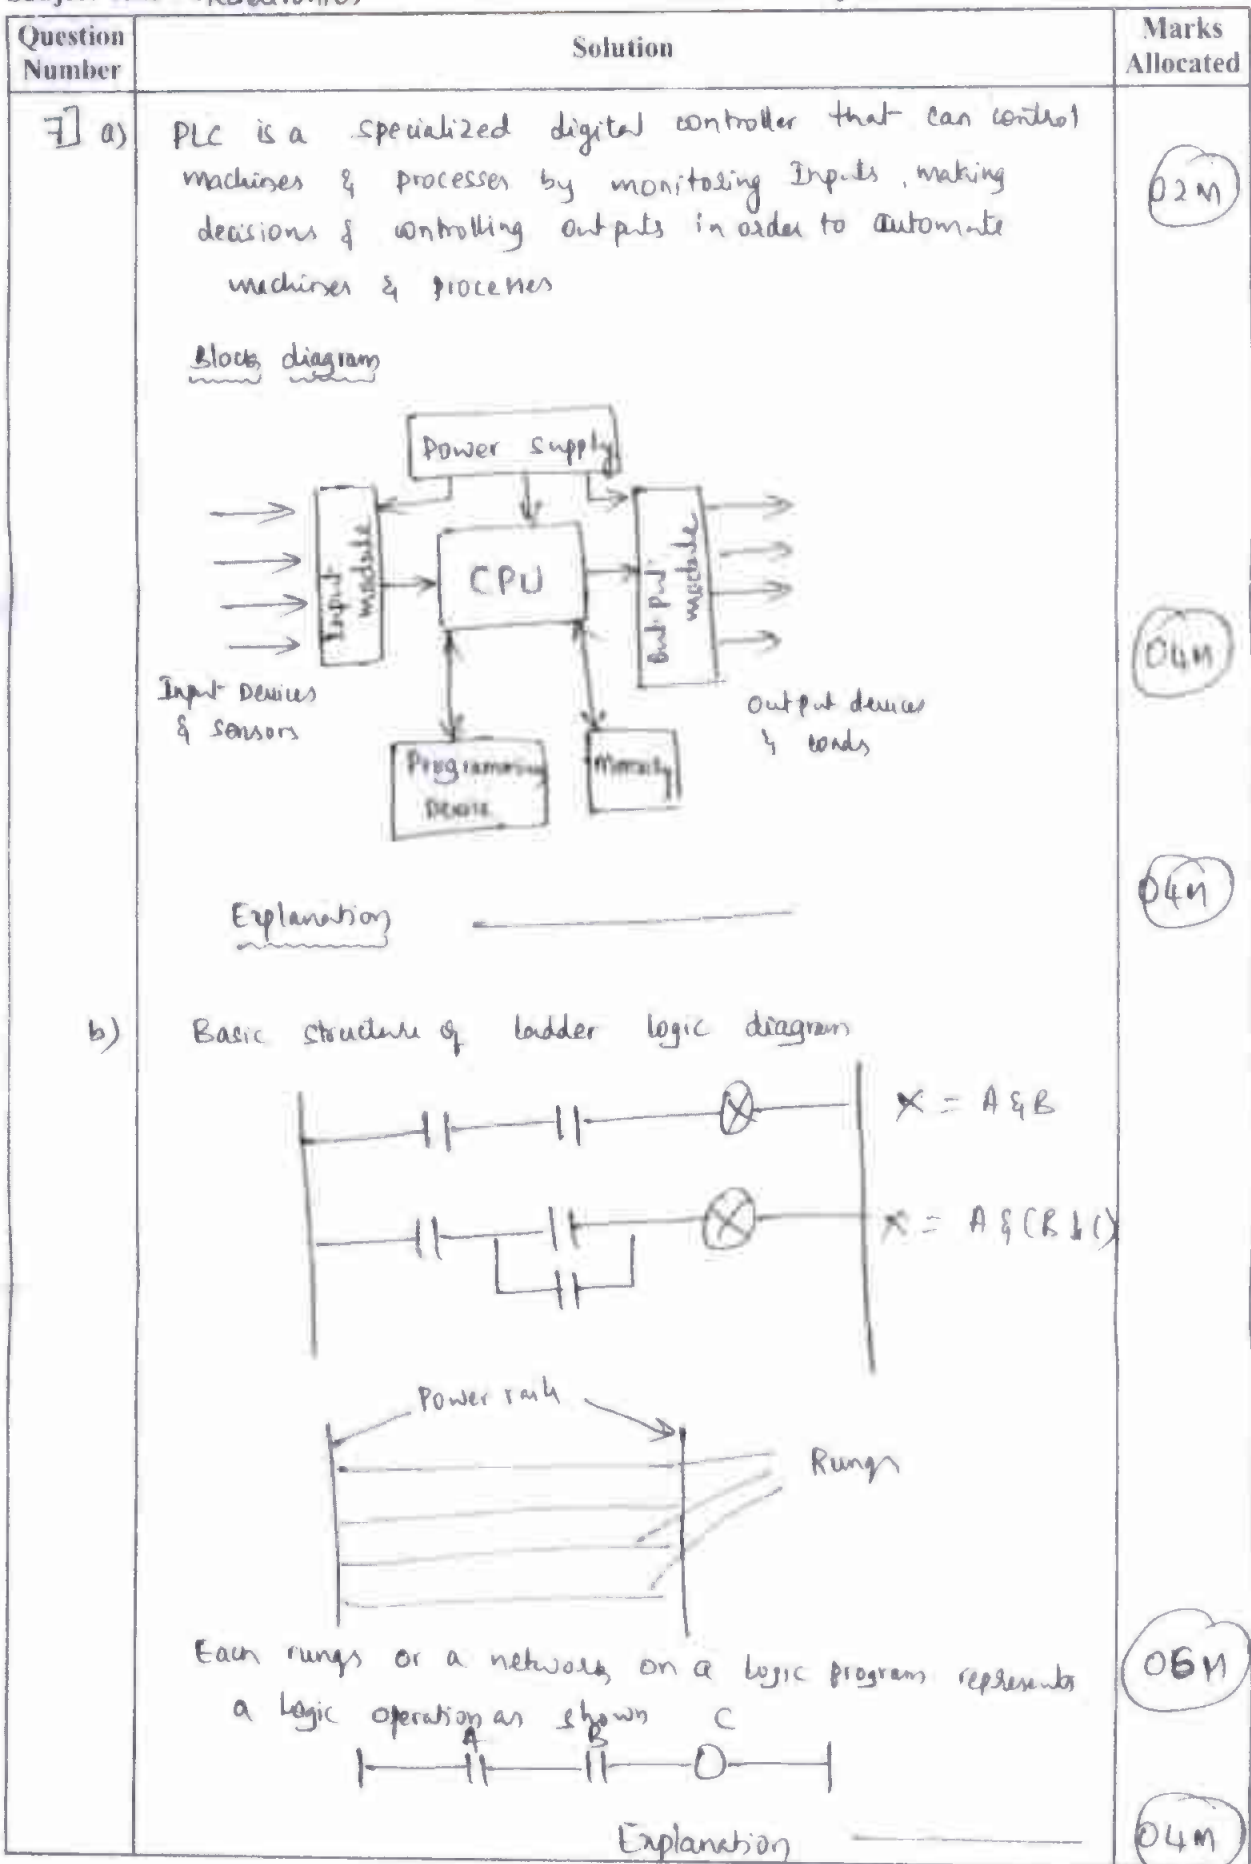 Question
Number
Solution
Marks
Allocated
7] a)
PLC is a specialized digital controller that can control
machines & processes by monitoring Inputs, making
decisions & controlling outputs in order to automate
machines & processes
02M
Block diagram
Power supply
Input module
CPU
Output module
Input Devices
& sensors
Output devices
& loads
Programming
Device
Memory
04M
Explanation
04M
b)
Basic structure of ladder logic diagram
X = A & B
X = A & (B
Power rails
Rungs
Each rungs or a network on a logic program represents
a logic operation as shown
A B C
06M
Explanation
04M